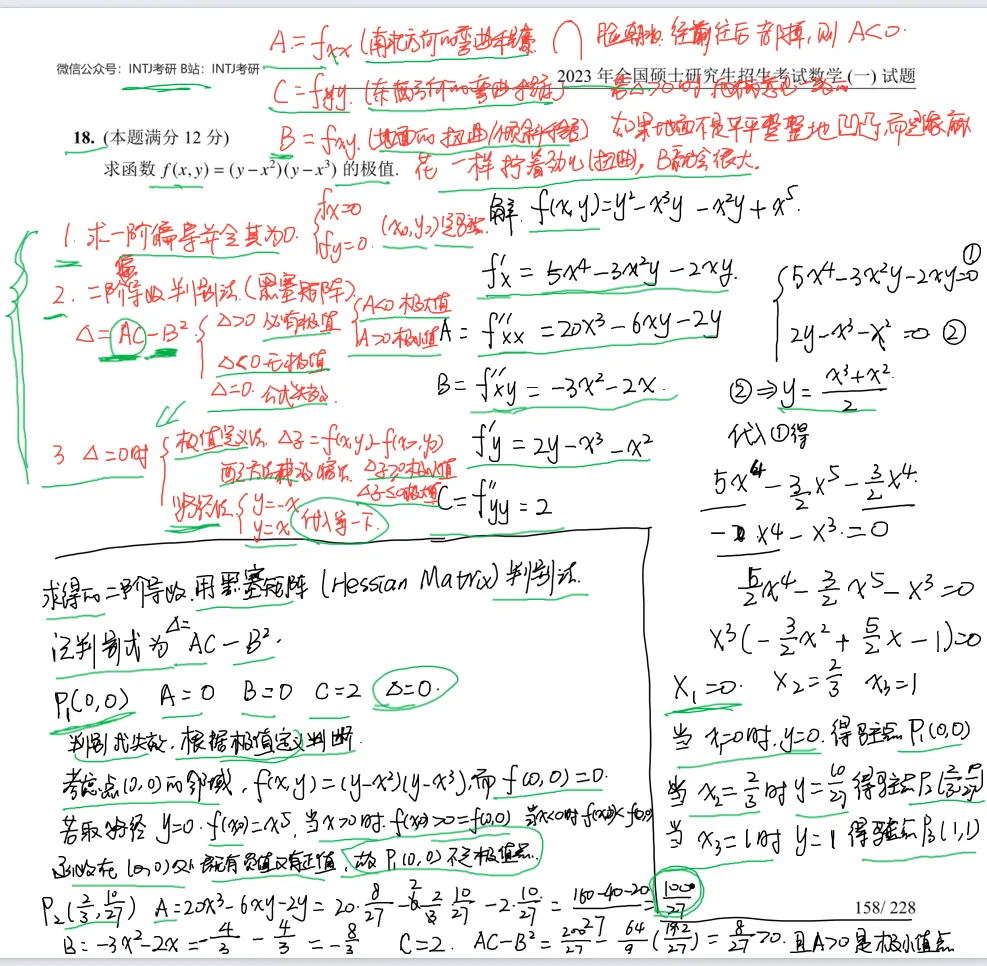 A = fxx (南北方向的弯曲程度
微信公众号：INTJ考研 B站：INTJ考研
2023 年全国硕士研究生招生考试数学 (一) 试题
C = fyy. (东西方向的弯曲程度)
B = fxy. (地面的扭曲/倾斜程度) 如果地面不是平平整整地凹凸,而是像麻
花一样拧着劲儿(扭曲), B就会很大.
18. (本题满分 12 分)
求函数 f(x, y) = (y − x²)(y − x³) 的极值.
1. 求一阶偏导并令其为0. { fx=0 fy=0. (x₀,y₀)是驻点.
2. 二阶导数判别法(黑塞矩阵)
Δ = AC − B² { Δ>0 必有极值 { A<0 极大值 A>0 极小值
Δ<0 无极值
Δ=0. 公式失效.
3 Δ=0时 { 极值定义法 Δz=f(x,y)-f(x₀,y₀)
Δz≥0极小值
Δz≤0极大值
y=-x
y=x 代入算一下.
解. f(x,y)=y²-x³y-x²y+x⁵.
f'x = 5x⁴-3x²y-2xy.
A = f''xx = 20x³-6xy-2y
B = f''xy = -3x²-2x.
f'y = 2y-x³-x²
C = f''yy = 2
{ 5x⁴-3x²y-2xy=0 ①
2y-x³-x²=0 ②
② ⇒ y = (x³+x²)/2
代入①得
5x⁴ - 3/2 x⁵ - 3/2 x⁴
- x⁴ - x³ = 0
5/2 x⁴ - 3/2 x⁵ - x³ = 0
x³(-3/2 x² + 5/2 x - 1)=0
x₁=0. x₂=2/3 x₃=1
当 x₁=0时, y=0. 得驻点 P₁(0,0)
当 x₂=2/3 时 y=10/27 得驻点 P₂(2/3, 10/27)
当 x₃=1时 y=1 得驻点 P₃(1,1)
求得的二阶导数,用黑塞矩阵 (Hessian Matrix) 判别法.
记判别式为 Δ= AC − B².
P₁(0,0) A=0 B=0 C=2 Δ=0.
判别式失效. 根据极值定义判断.
考虑点(0,0)的邻域, f(x,y)=(y-x²)(y-x³),而 f(0,0)=0.
若取路径 y=0. f(x,0)=x⁵, 当x>0时. f(x,0)>0=f(0,0) 当x<0时 f(x,0)<f(0,0)
函数在(0,0)处既有负值又有正值, 故 P₁(0,0) 不是极值点.
P₂(2/3, 10/27) A=20x³-6xy-2y = 20·8/27 - 6·2/3·10/27 - 2·10/27 = (160-40-20)/27 = 100/27
B = -3x²-2x = -4/3 - 4/3 = -8/3 C=2. AC-B² = 200/27 - 64/9 (192/27) = 8/27 >0. 且A>0 是极小值点
158/ 228